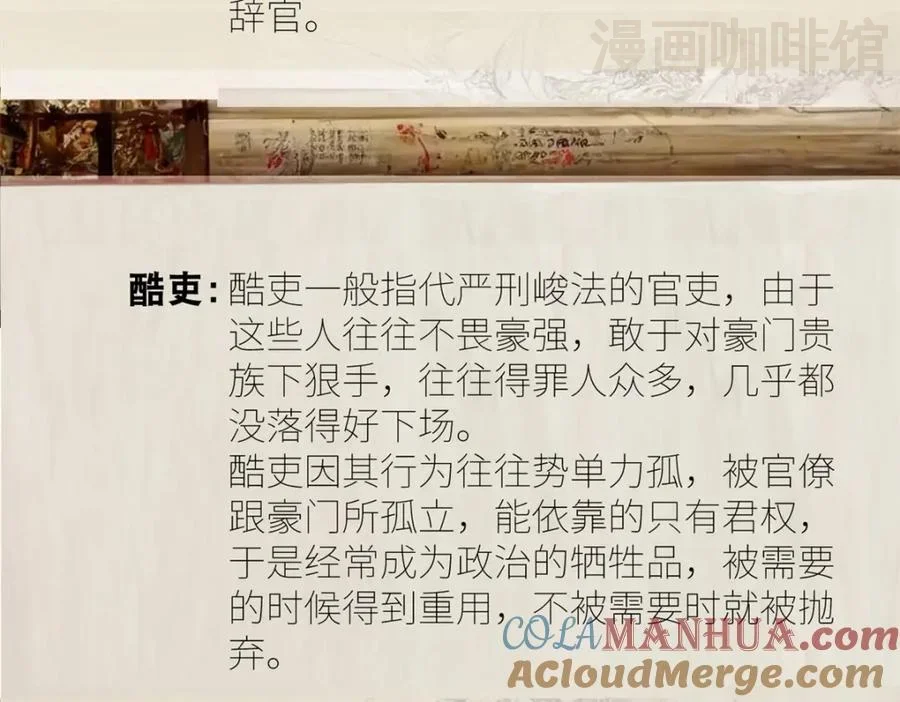 辞官。
漫画咖啡馆
酷吏：酷吏一般指代严刑峻法的官吏，由于
这些人往往不畏豪强，敢于对豪门贵
族下狠手，往往得罪人众多，几乎都
没落得好下场。
酷吏因其行为往往势单力孤，被官僚
跟豪门所孤立，能依靠的只有君权，
于是经常成为政治的牺牲品，被需要
的时候得到重用，不被需要时就被抛
弃。
COLAMANHUA.com
ACloudMerge.com